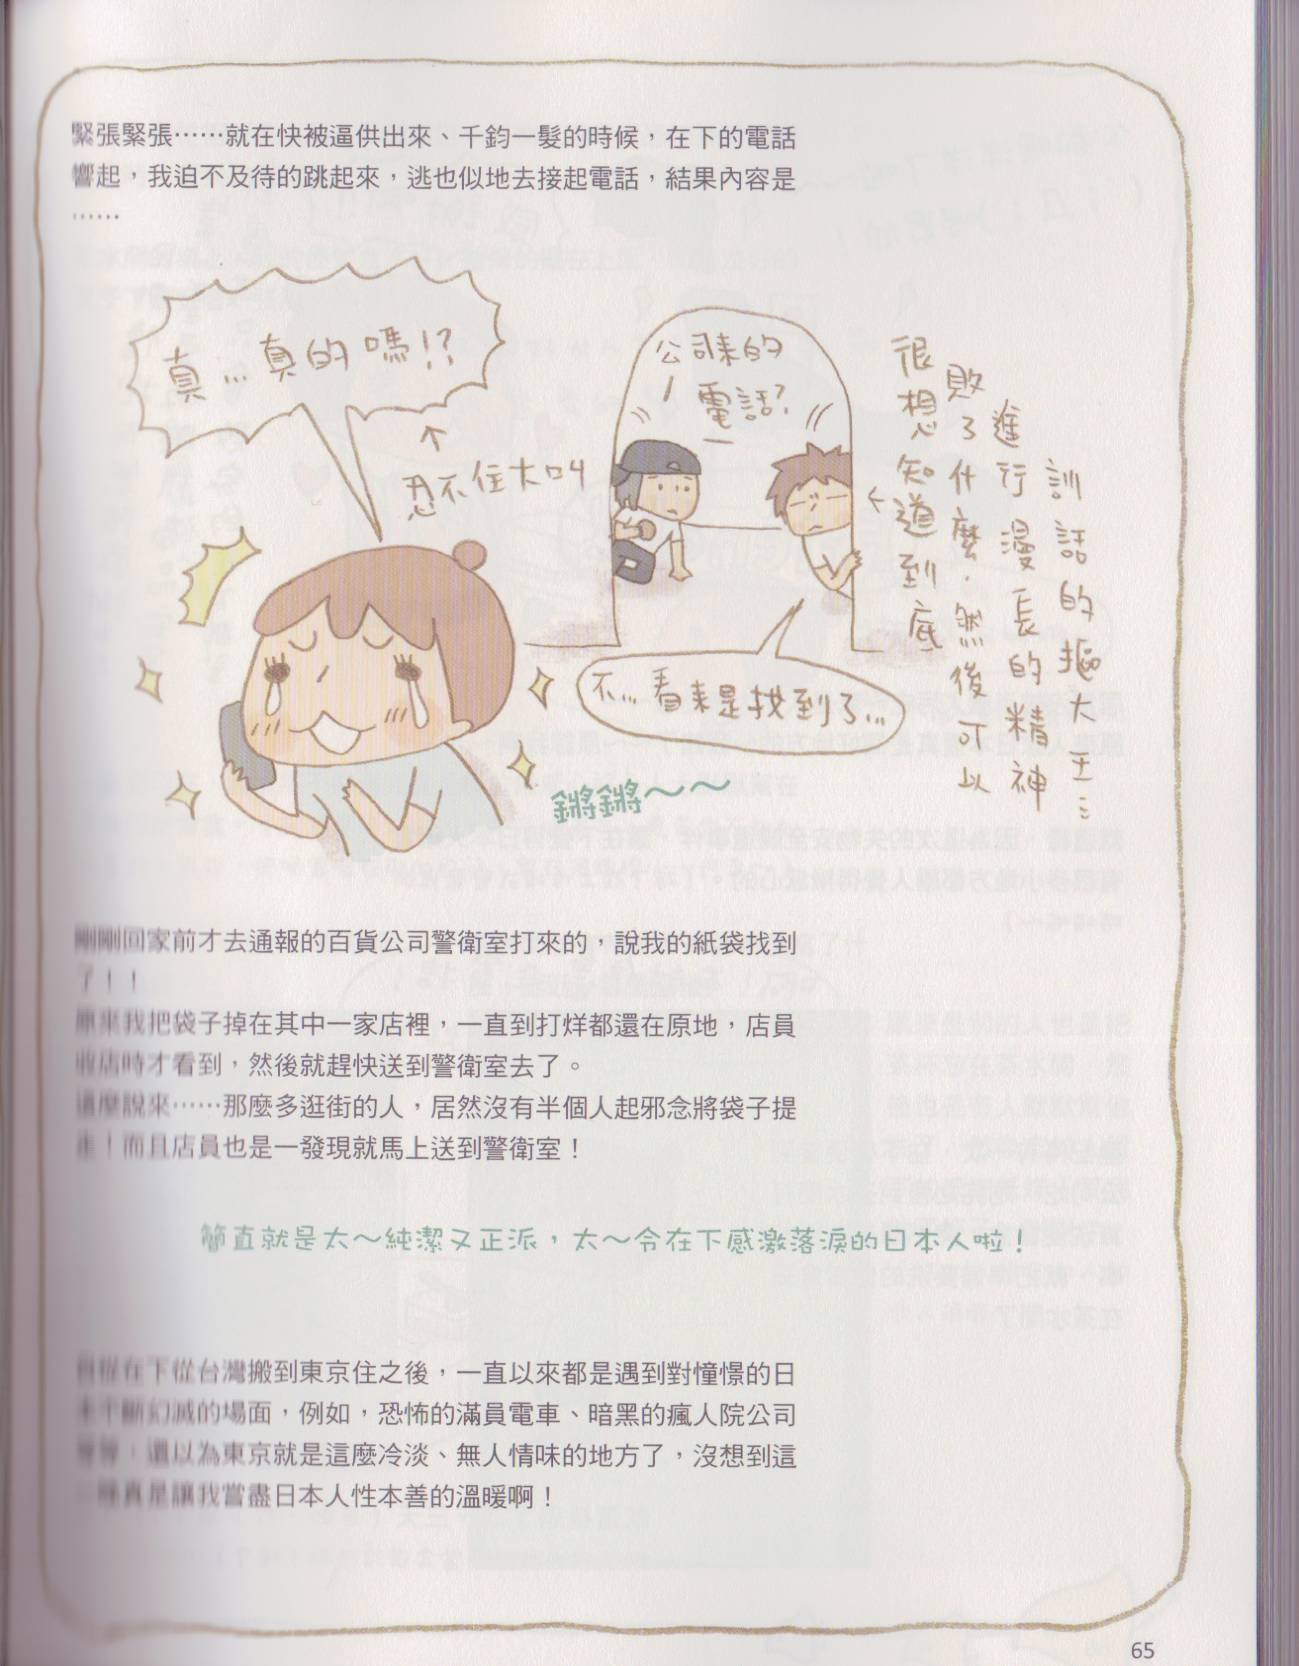 緊張緊張⋯⋯就在快被逼供出來、千鈞一髮的時候，在下的電話
響起，我迫不及待的跳起來，逃也似地去接起電話，結果內容是
⋯⋯
真...真的嗎!?
↑
忍不住大叫
公司來的
電話?
不...看來是找到了...
訓話的摳大王...
進行漫長的精神
敗了什麼，然後可以
很想知道到底
鏘鏘～～
剛剛回家前才去通報的百貨公司警衛室打來的，說我的紙袋找到
了！！
原來我把袋子掉在其中一家店裡，一直到打烊都還在原地，店員
收店時才看到，然後就趕快送到警衛室去了。
這麼說來⋯⋯那麼多逛街的人，居然沒有半個人起邪念將袋子提
走！而且店員也是一發現就馬上送到警衛室！
簡直就是太～純潔又正派，太～令在下感激落淚的日本人啦！
自從在下從台灣搬到東京住之後，一直以來都是遇到對憧憬的日
本不斷幻滅的場面，例如，恐怖的滿員電車、暗黑的瘋人院公司
等等，還以為東京就是這麼冷淡、無人情味的地方了，沒想到這
一晚真是讓我嘗盡日本人性本善的溫暖啊！
65